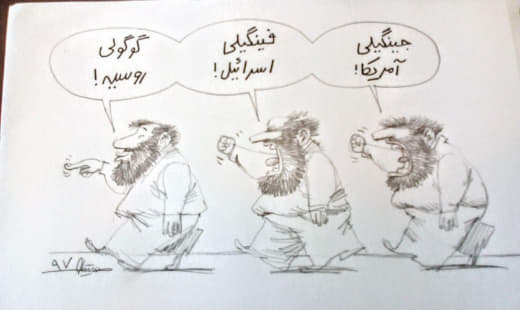 جینگیلی
آمریکا!
فینگیلی
اسرائیل!
گوگولی
روسیه!
۹۷